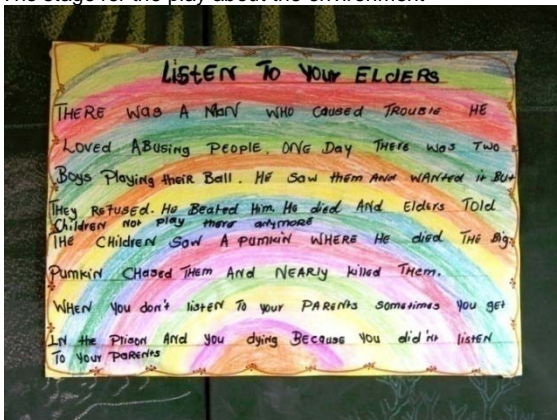 The stage for the play about the environment
LiSTEN To YOUR ELDERS
THERE WAS A MAN WHO CAUSED TROUBLE HE
LOVED ABUSING PEOPLE. ONE DAY THERE WAS TWO
BOYS PLAYING THEIR BALL. HE SAW THEM AND WANTED it BUT
THEY REFUSED. HE BEATED HIM. HE died AND ELDERS TOLD
CHILDREN NOT PLAY THERE ANYMORE
THE CHILDREN SAW A PUMKIN WHERE HE died THE Big
PUMKIN CHASED THEM AND NEARLY killed THEM.
WHEN YOU don't listEN TO YOUR PARENTS SOMETIMES YOU GET
IN the PRISON AND YOU dying BECAUSE YOU did'nt listEN
TO YOUR PARENTS